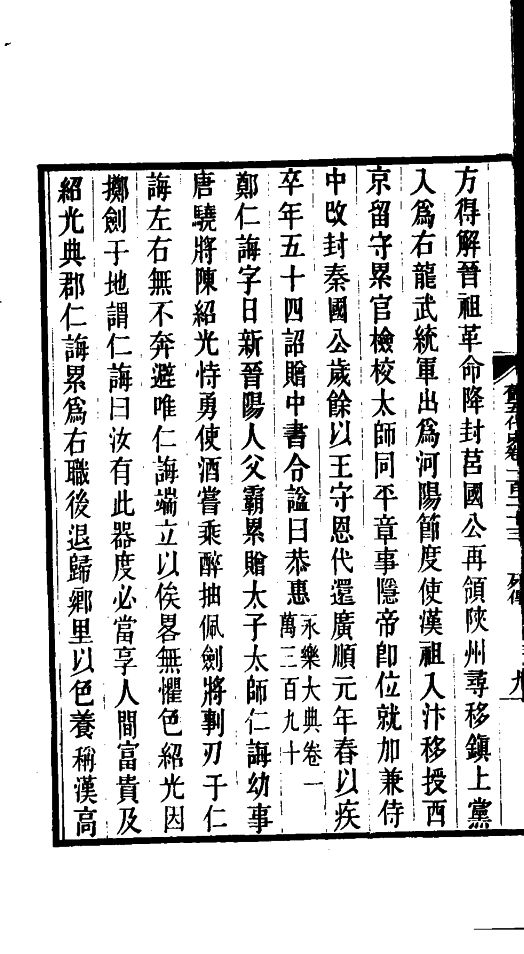 舊五代史卷一百二十三 列傳
九
方得解晉祖革命降封莒國公再領陝州尋移鎮上黨
入爲右龍武統軍出爲河陽節度使漢祖入汴移授西
京留守累官檢校太師同平章事隱帝卽位就加兼侍
中改封秦國公歲餘以王守恩代還廣順元年春以疾
卒年五十四詔贈中書令諡曰恭惠永樂大典卷一
萬三百九十
鄭仁誨字日新晉陽人父霸累贈太子太師仁誨幼事
唐驍將陳紹光恃勇使酒嘗乘醉抽佩劍將剚刃于仁
誨左右無不奔避唯仁誨端立以俟畧無懼色紹光因
擲劍于地謂仁誨曰汝有此器度必當享人間富貴及
紹光典郡仁誨累爲右職後退歸鄉里以色養稱漢高